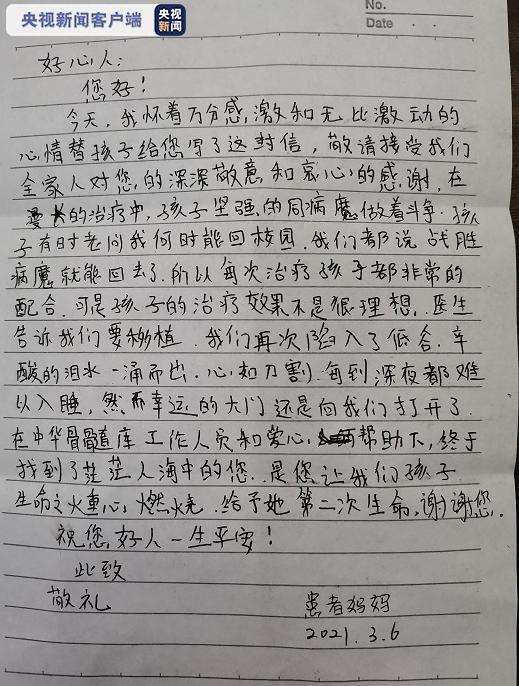 央视新闻
央视新闻客户端
No.
Date
好心人:
您好!
今天,我怀着万分感激和无比激动的
心情替孩子给您写了这封信,敬请接受我们
全家人对您的深深敬意和衷心的感谢,在
漫长的治疗中,孩子坚强的同病魔做着斗争.孩
子有时老问我何时能回校园.我们都说战胜
病魔就能回去了.所以每次治疗孩子都非常的
配合.可是孩子的治疗效果不是很理想.医生
告诉我们要移植.我们再次陷入了低谷.辛
酸的泪水一涌而出.心如刀割.每到深夜都难
以入睡,然而幸运的大门还是向我们打开了.
在中华骨髓库工作人员和爱心帮助下,终于
找到了茫茫人海中的您.是您让我们孩子
生命之火重心燃烧.给予她第二次生命,谢谢您.
祝您好人一生平安!
此致
敬礼
患者妈妈
2021.3.6